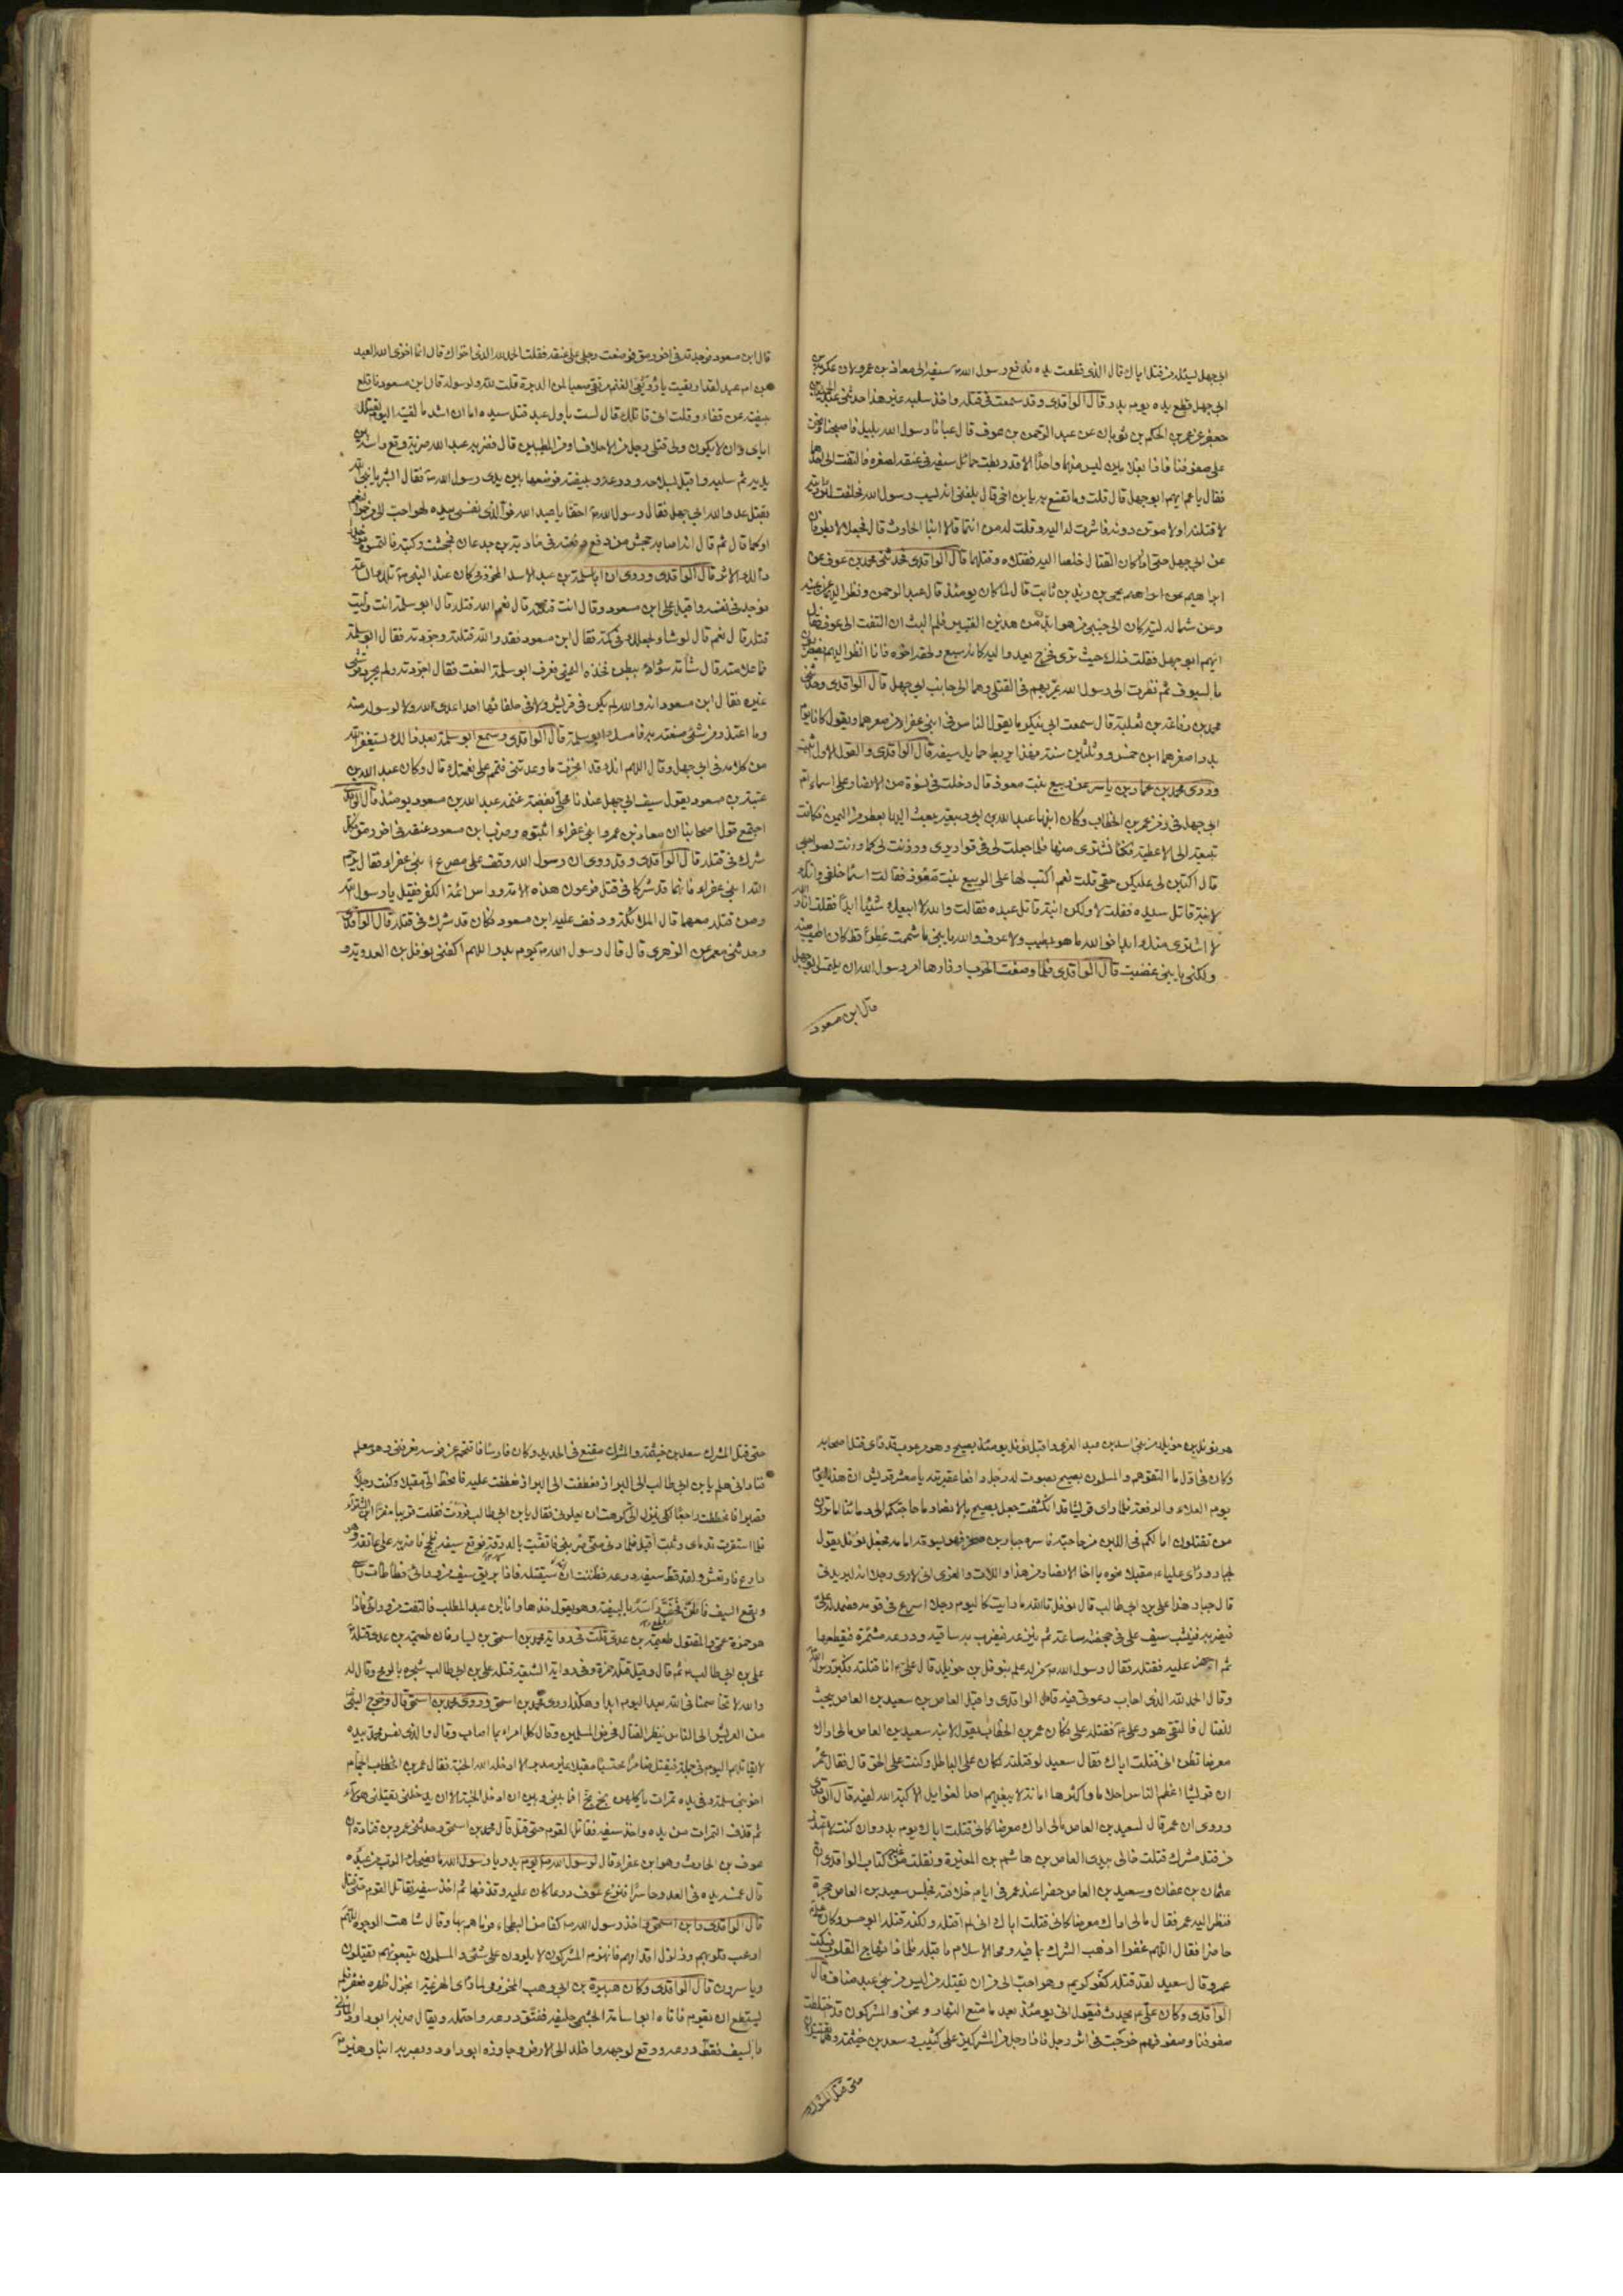 ابي جهل يسئله من قتل اباك قال الذي قطعت يده فدفع رسول الله ص سيفه الى معاذ بن عمرو لان عكرمة بن
ابي جهل قطع يده يوم بدر قال الواقدي وقد سمعت في قتله واخذ سلبه غير هذا حدثني عبد الحميد بن
جعفر عن عمر بن الحكم بن ثوبان عن عبد الرحمن بن عوف قال عبانا رسول الله بليل فاصبحنا ونحن
على صفوفنا فاذا بغلامين ليس منهما واحد الا قد ربطت حمائل سيفه في عنقه لصغره فالتفت الى احدهما
فقال يا عم ايهم ابو جهل قال قلت وما تصنع به يا ابن اخي قال بلغني انه يسب رسول الله فحلفت لئن رايته
لاقتلنه او لاموتن دونه فاشرت له اليه وقلت له من انتما قالا ابنا الحارث قال فجعلا لا يطرفان
عن ابي جهل حتى اذا كان القتال خلصا اليه فقتلاه وقتلهما قال الواقدي فحدثني محمد بن عوف عن
ابراهيم عن ابراهيم يحيى بن زيد بن ثابت قال لما كان يومئذ قال عبد الرحمن ونظر اليهما عن يمينه
وعن شماله ليته كان الى جنبي من هو ابدن من هذين الفتيين فلم البث ان التفت الى عوف فقال
ايهم ابو جهل فقلت ذلك حيث ترى فخرج يعدو اليه كانه سبع ولحقه اخوه فانا انظر اليهم يضطربون
بالسيوف ثم نظرت الى رسول الله يمر بهم في القتلى وهما الى جانب ابي جهل قال الواقدي وحدثني
محمد بن رفاعة بن ثعلبة قال سمعت ابي ينكر ما يقول الناس في ابني عفراء من صغرهما ويقول كانا يوم
بدر اصغرهما ابن خمس وثلثين سنة فهذا يربط حمايل سيفه قال الواقدي والقول الاول اثبت
وروى محمد بن عمار بن ياسر عن ربيع بنت معوذ قال دخلت في نسوة من الانصار على اسماء ام
ابي جهل في زمن عمر بن الخطاب وكان ابنها عبد الله بن ابي ربيعة يبعث اليها بعطر من اليمن فكانت
تبيعه الى الاعطية فكنا نشتري منها فلما جعلت لي في قواريري ووزنت لي كما وزنت لصواحبي
قال اكتبن لي عليكن حقي قلت نعم اكتب لها على الربيع بنت معوذ فقالت اسماء حلقى وانك
لابنة قاتل سيده فقلت لا ولكن ابنة قاتل عبده فقالت والله لا ابيعك شيئا ابدا فقلت انا والله
لا اشتري منك ابدا فوالله ما هو بطيب ولا عرف والله يا بني ما شممت عطرا قط كان اطيب منه
ولكني يا بني غضبت قال الواقدي فلما وضعت الحرب اوزارها امر رسول الله ان يلتمس ابو جهل
قال ابن مسعود
قال ابن مسعود فوجدته في اخر رمق فوضعت رجلي على عنقه فقلت الحمد لله الذي اخزاك قال انما اخزى الله العبد
ابن ام عبد لقد ارتقيت يا رويعي الغنم مرتقى صعبا لمن الدبرة قلت لله ولرسوله قال ابن مسعود فاقلع
بيضته عن قفاه وقلت اني قاتلك قال لست باول عبد قتل سيده اما ان اشد ما لقيته اليوم لقتلك
اياي وان لا يكون ولي قتلي رجل من الاحلاف او من المطيبين قال فضربه عبد الله ضربة وقع راسه بين
يديه ثم سلبه واقبل بسلاحه ودرعه وبيضته فوضعها بين يدي رسول الله ص فقال ابشر يا نبي الله
بقتل عدو الله ابي جهل فقال رسول الله ص احقا يا عبد الله فو الذي نفسي بيده لهو احب الي من حمر النعم
او كما قال ثم قال انه اصابه جحش من دفع دفعته في مادبة بن جدعان فجحشت ركبته فالتمسوه فوجدوا
ذلك الاثر قال الواقدي وروي ان ابا سلمة بن عبد الاسد المخزومي كان عند النبي ص تلك الساعة
فوجد في نفسه واقبل على ابن مسعود وقال انت قتلته قال نعم الله قتله قال ابو سلمة انت وليت
قتله قال نعم قال لو شاء لجعلك في كمه فقال ابن مسعود فقد والله قتلته وجردته فقال ابو سلمة
فما علامته قال شامة سوداء ببطن فخذه اليمنى فعرف ابو سلمة النعت فقال اجردته ولم يجرد قرشي
غيره فقال ابن مسعود انه والله لم يكن في قريش ولا في حلفائها احد اعدى لله ولا لرسوله منه
وما اعتذر من شيء صنعته به فامسك ابو سلمة قال الواقدي وسمع ابو سلمة بعد ذلك يستغفر الله
من كلامه في ابي جهل وقال اللهم انك قد انجزت ما وعدتني فتمم علي نعمتك قال وكان عبد الله بن
عتبة بن مسعود يقول سيف ابي جهل عندنا محلى بفضة غنمه عبد الله بن مسعود يومئذ قال الواقدي
اجتمع قول اصحابنا ان معاذ بن عمرو ابني عفراء اثبتوه وضرب ابن مسعود عنقه في اخر رمق فكل
شرك في قتله قال الواقدي وقد روي ان رسول الله وقف على مصرع ابني عفراء فقال يرحم
الله ابني عفراء فانهما قد شركا في قتل فرعون هذه الامة وراس ائمة الكفر فقيل يا رسول الله
ومن قتله معهما قال الملائكة وذفف عليه ابن مسعود فكان قد شرك في قتله قال الواقدي
وحدثني معمر عن الزهري قال قال رسول الله ص يوم بدر اللهم اكفني نوفل بن العدوية و
هو نوفل بن خويلد من بني اسد بن عبد العزى واقبل نوفل يومئذ يصيح وهو مرعوب قد راى قتل اصحابه
وكان في اول ما التقوهم والمسلمون يصيح بصوت له زجل رافعا عقيرته يا معشر قريش ان هذا اليوم
يوم العلاء والرفعة فلما راى قريشا قد انكشفت جعل يصيح بالانصار ما حاجتكم الى دمائنا اما ترون
من تقتلون اما لكم في اللبن من حاجة فاسره جبار بن صخر فهو يسوقه امامه فجعل نوفل يقول
لجبار وراى عليا ع مقبلا نحوه يا اخا الانصار من هذا واللات والعزى اني لارى رجلا انه ليريدني
قال جبار هذا علي بن ابي طالب قال نوفل تالله ما رايت كاليوم رجلا اسرع في قومه فصمد له علي ع
فيضربه فينشب سيف علي في حجفته ساعة ثم ينزعه فيضرب به ساقيه ودرعه مشمرة فيقطعها
ثم اجهز عليه فقتله فقال رسول الله ص من له علم بنوفل بن خويلد قال علي ع انا قتلته فكبر رسول الله
وقال الحمد لله الذي اجاب دعوتي فيه قال الواقدي واقبل العاص بن سعيد بن العاص يبحث
للقتال فالتقى هو وعلي ع فقتله علي فكان عمر بن الخطاب يقول لابنه سعيد بن العاص مالي اراك
معرضا تظن اني قتلت اباك فقال سعيد لو قتلته لكان على الباطل وكنت على الحق قال فقال عمر
ان قريشا اعظم الناس احلاما واكثرها امانة لا يبغيهم احد الغوايل الا كبه الله لفيه قال الواقدي
وروي ان عمر قال لسعيد بن العاص مالي اراك معرضا كاني قتلت اباك يوم بدر وان كنت لا اعتذر
من قتل مشرك قتلت خالي بيدي العاص بن هاشم بن المغيرة ونقلت من غير كتاب الواقدي ان
عثمان بن عفان وسعيد بن العاص حضرا عند عمر في ايام خلافته فجلس سعيد بن العاص حجرة
فنظر اليه عمر فقال مالي اراك معرضا كاني قتلت اباك اني لم اقتله ولكنه قتله ابو حسن وكان علي ع
حاضرا فقال اللهم غفرا ذهب الشرك بما فيه ومحا الاسلام ما قبله فلماذا تهاج القلوب فسكت
عمر وقال سعيد لقد قتله كفو كريم وهو احب الي من ان يقتله من ليس من بني عبد مناف قال
الواقدي وكان علي ع يحدث فيقول اني يومئذ بعد ما متع النهار ونحن والمشركون قد اختلطت
صفوفنا وصفوفهم خرجت في اثر رجل فاذا رجل من المشركين على كثيب وسعد بن خيثمة وهما يقتتلان
حتى قتل المشرك
حتى قتل المشرك سعد بن خيثمة والمشرك مقنع في الحديد وكان فارسا فاقتحم عن فرسه فعرفني وهو معلم
فناداني هلم يا بن ابي طالب الى البراز فعطفت الى البراز فعطفت عليه فانحط الي مقبلا وكنت رجلا
قصيرا فانحططت راجعا لكي ينزل الي كرهت ان يعلوني فقال يا بن ابي طالب فررت فقلت قريبا مفر ابن الشتراء
فلما استقرت قدماي وثبت اقبل فلما دنى مني ضربني فاتقيت بالدرقة فوقع سيفه فلحج فاضربه على عاتقه وهو
دارع فارتعش ولقد قط سيفي درعه فظننت ان سيقتله فاذا بريق سيف من ورائي فطاطات راسي
ويقع السيف فاطن قحف راسه بالبيضة وهو يقول خذها وانا ابن عبد المطلب فالتفت من ورائي فاذا
هو حمزة عمي والمقتول طعيمة بن عدي قلت في رواية محمد بن اسحق بن يسار فان طعيمة بن عدي قتله
علي بن ابي طالب ع ثم قال وقيل قتله حمزة وفي رواية الشيعة قتله علي بن ابي طالب شجره بالرمح وقال له
والله لا تخاصمنا في الله بعد اليوم ابدا وهكذا روى محمد بن اسحق وروى محمد بن اسحق قال وخرج النبي
من العريش الى الناس ينظر القتال فحرض المسلمين وقال كل امرء بما اصاب وقال والذي نفس محمد بيده
لا يقاتلهم اليوم في جملة فيقتل صابرا محتسبا مقبلا غير مدبر الا ادخله الله الجنة فقال عمر بن الخطاب الحمام
اخو بني سلمة وفي يده تمرات ياكلهن بخ بخ افما بيني وبين ان ادخل الجنة الا ان يدخلني بقتلاني هولاء
ثم قذف التمرات من يده واخذ سيفه فقاتل القوم حتى قتل قال محمد بن اسحق وحدثني عمرو بن قتادة ان
عوف بن الحارث وهو ابن عفراء قال لرسول الله ص يوم بدر يا رسول الله ما يضحك الرب من عبده
قال غمسه يده في العدو حاسرا فنزع عوف درعا كان عليه وقذفها ثم اخذ سيفه فقاتل القوم حتى قتل
قال الواقدي وابن اسحق واخذ رسول الله ص كفا من البطحاء فرماهم بها وقال شاهت الوجوه اللهم
ارعب قلوبهم وزلزل اقدامهم فانهزم المشركون لا يلوون على شيء والمسلمون يتبعونهم يقتلون
وياسرون قال الواقدي وكان هبيرة بن ابي وهب المخزومي لما راى الهزيمة انخزل ظهره فعقر فلم
يستطع ان يقوم فاتاه ابو اسامة الجشمي حليفه ففتق درعه واحتمله ويقال ضربه ابو داود المازني
بالسيف فقط درعه ووقع لوجهه واخلد الى الارض وجاوزه ابو داود وبصر به ابنا زهير